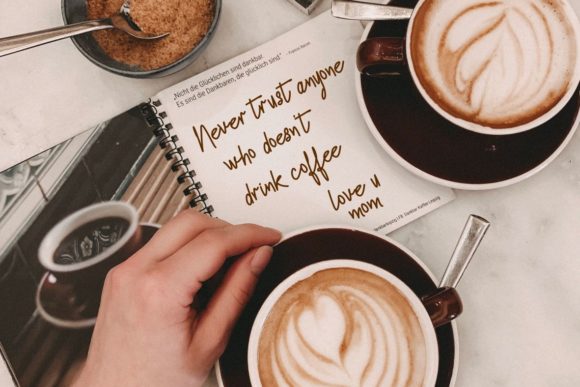 „Nicht die Glücklichen sind dankbar.
Es sind die Dankbaren, die glücklich sind"
- Francis Bacon
Never trust anyone
who doesn't
drink coffee
love u
mom